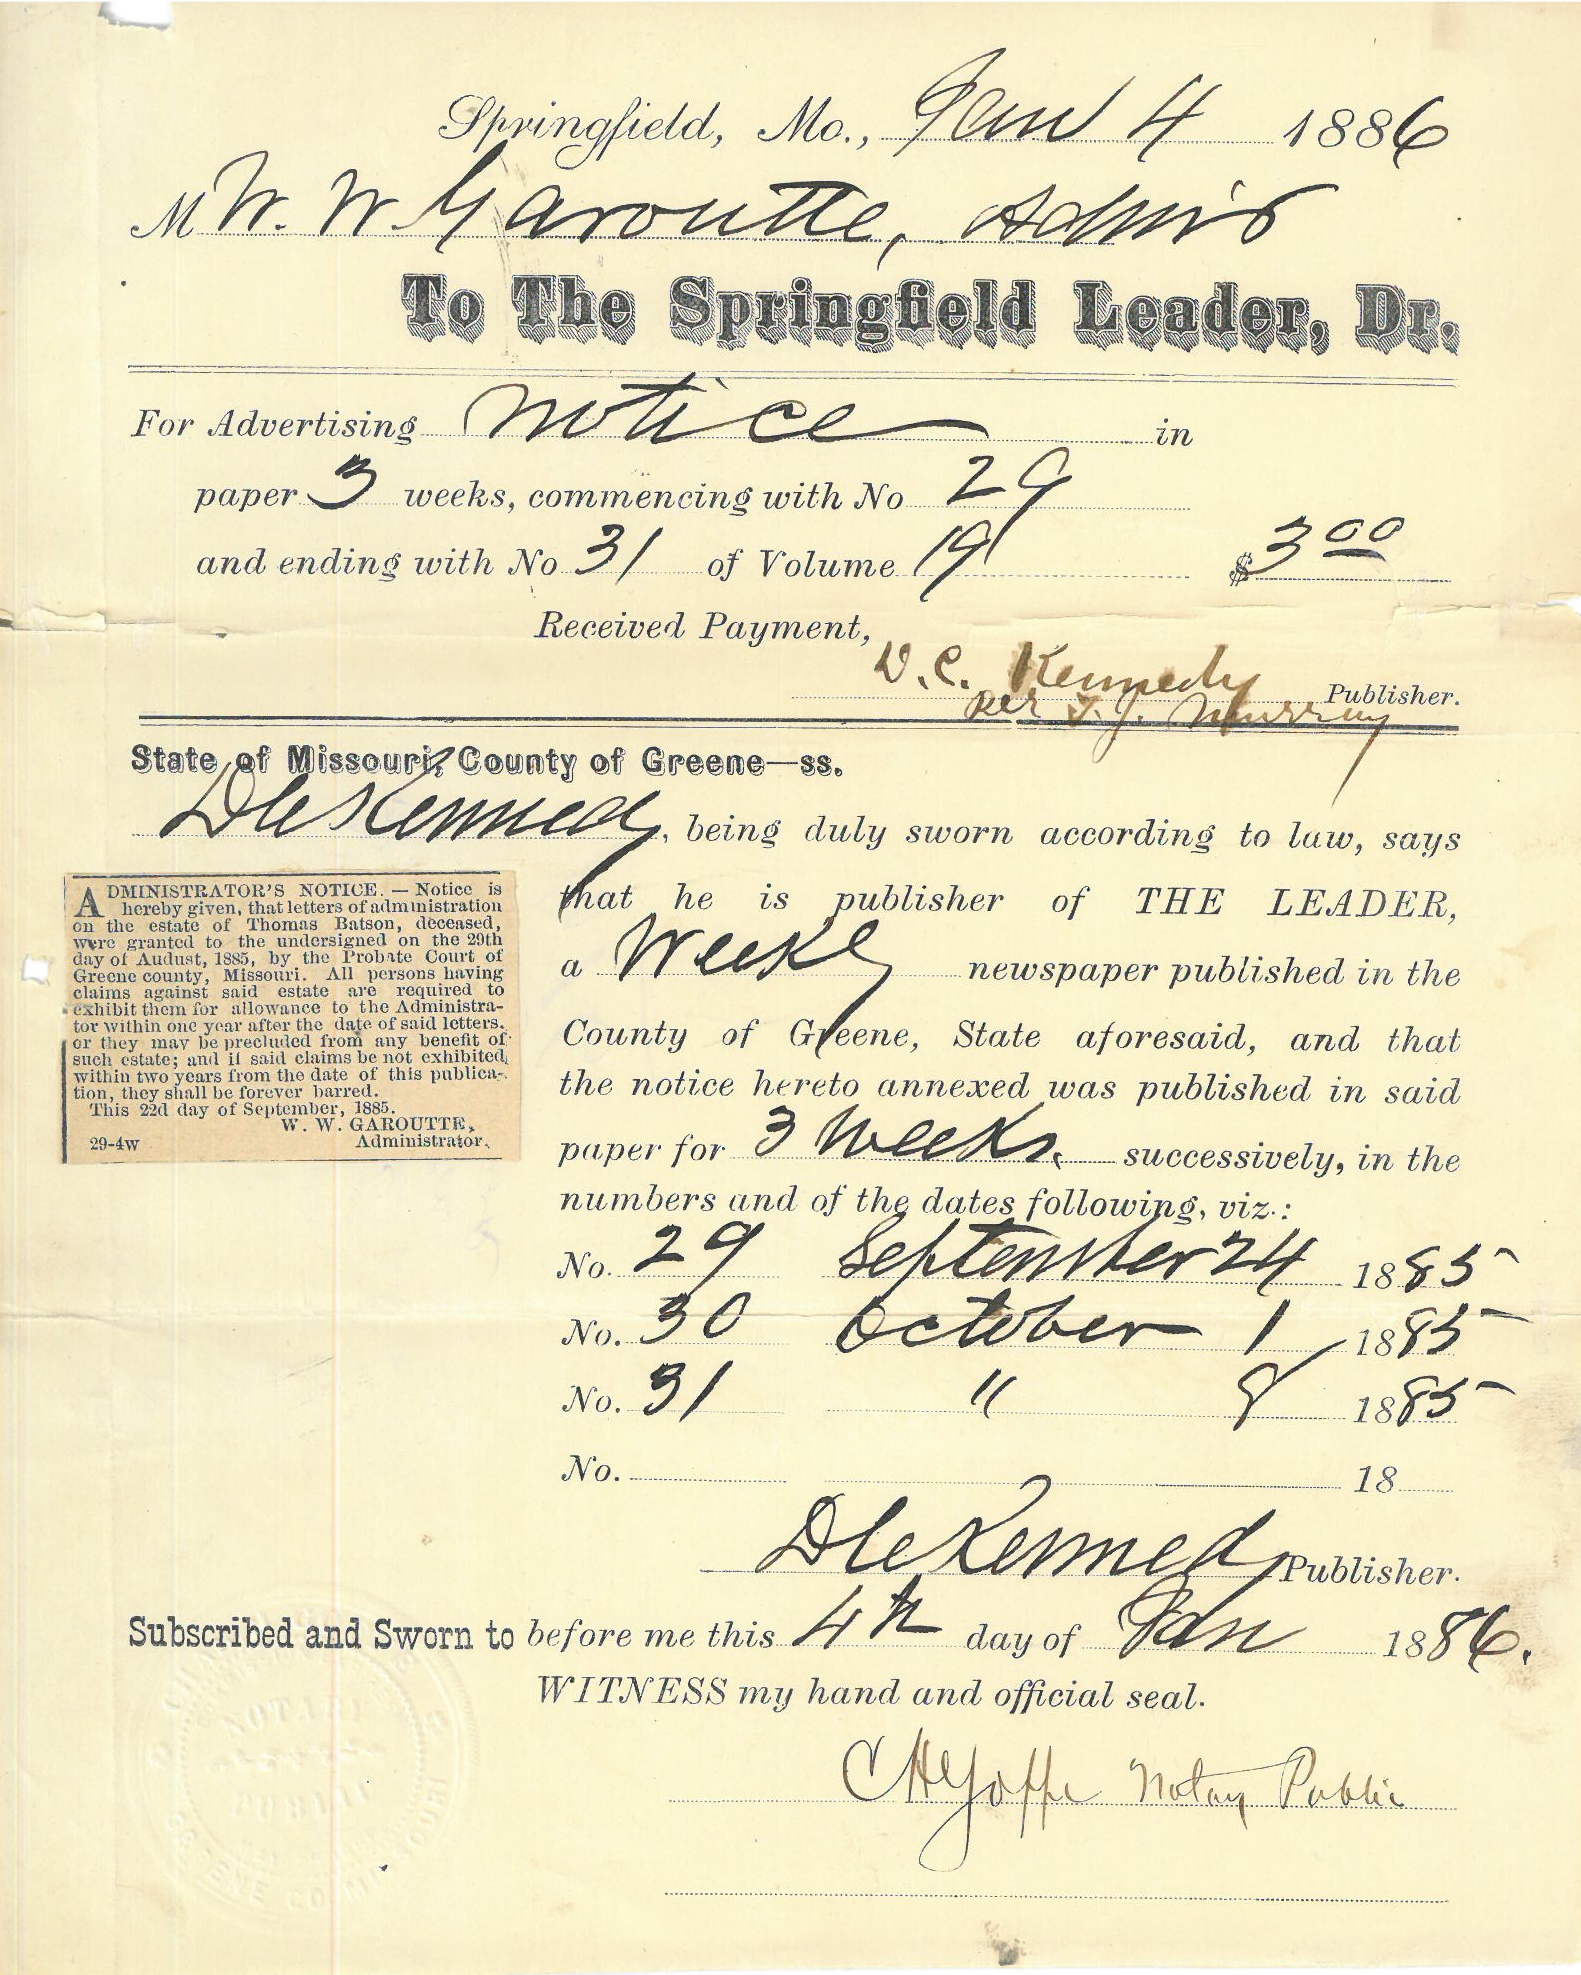 Springfield, Mo., Jan 4 1886
M W. W. Garoutte, Admr
To The Springfield Leader, Dr.
For Advertising Notice in
paper 3 weeks, commencing with No 29
and ending with No 31 of Volume 19 $3 00
Received Payment,
D. C. Kennedy Publisher.
per T. J. Murray
State of Missouri, County of Greene—ss.
D C Kennedy, being duly sworn according to law, says
that he is publisher of THE LEADER,
a Weekly newspaper published in the
County of Greene, State aforesaid, and that
the notice hereto annexed was published in said
paper for 3 Weeks. successively, in the
numbers and of the dates following, viz.:
No. 29 September 24 1885
No. 30 October 1 1885
No. 31 " 8 1885
No. 18
D C Kennedy Publisher.
ADMINISTRATOR'S NOTICE. — Notice is
hereby given, that letters of administration
on the estate of Thomas Batson, deceased,
were granted to the undersigned on the 29th
day of August, 1885, by the Probate Court of
Greene county, Missouri. All persons having
claims against said estate are required to
exhibit them for allowance to the Administra-
tor within one year after the date of said letters,
or they may be precluded from any benefit of
such estate; and if said claims be not exhibited
within two years from the date of this publica-
tion, they shall be forever barred.
This 22d day of September, 1885.
W. W. GAROUTTE,
29-4w Administrator.
Subscribed and Sworn to before me this 4th day of Jan 1886.
WITNESS my hand and official seal.
Notary Public
NOTARY
PUBLIC
GREENE CO MISSOURI